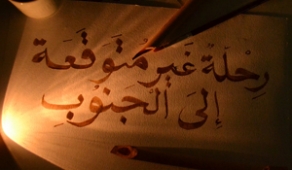 رِحْلَةٌ غَيْرُ مُتَوَقَّعَة
إِلَى الْجَنُوبِ